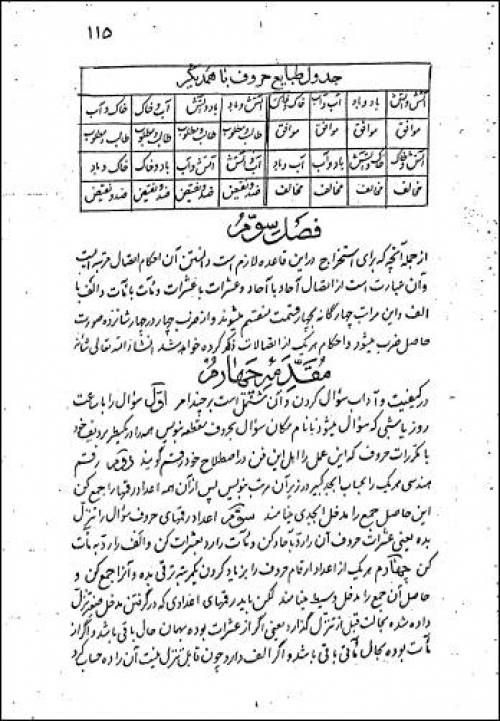 ۱۱۵
جدول طبایع حروف با همدیگر
آتش و آتش باد و باد آب و آب خاک و خاک آتش و باد باد و آتش آب و خاک خاک و آب
موافق موافق موافق موافق طالب و مطلوب طالب و مطلوب طالب و مطلوب طالب و مطلوب
آتش و خاک خاک و آتش باد و آب آب و باد آب و آتش آتش و آب باد و خاک خاک و باد
مخالف مخالف مخالف مخالف ضد و نقیض ضد و نقیض ضد و نقیض ضد و نقیض
فصل سوم
از جمله آنچه که برای استخراج در این قاعده لازم است دانستن آن احکام اتصال مرتبه است
و آن عبارت است از اتصال آحاد با آحاد و عشرات با عشرات و مآت با مآت و الف با
الف و این مراتب چهارگانه بچهار قسمت منقسم میشوند و از ضرب چهار در چهار شانزده صورت
حاصل ضرب میشود و احکام هر یک از اتصالات ذکر کرده خواهد شد انشاء الله تعالی
مقدمه چهارم
در کیفیت و آداب سؤال کردن و آن مشتمل است بر چند امر اول سؤال را با ساعت
روز یا شبی که سؤال میشود با نام مکان سؤال بحروف مقطعه بنویس همه را در یکسطر ردیف خود
با مکررات حروف که این عمل را اهل این فن در اصطلاح خود رقم گویند دوم رقم
هندسی هر یک را بحساب ابجد کبیر در زیر آن مرتب بنویس پس از آن همه اعداد رقمها را جمع کن
این حاصل جمع را مدخل ابجدی مینامند سوم اعداد رقمهای حروف سؤال را تنزل
بده یعنی عشرات حروف آن را رد بآحاد کن و مآت را رد بعشرات کن و الف را رد به مآت
کن چهارم هر یک از اعداد ارقام حروف را بزیاد کردن یکمرتبه ترقی بده و آنرا جمع کن و
حاصل آن جمع را مدخل وسیط مینامند لکن باید رقمهای اعدادی که در گرفتن مدخل صغیر تنزل
داده شده بحالت قبل از تنزل گذارد یعنی اگر از عشرات بوده بهمان حال باقی باشد و اگر از
مآت بوده بحال مآتی باقی باشد و اگر الف دارد چون قابل تنزل نیست آن را ده حساب کرد